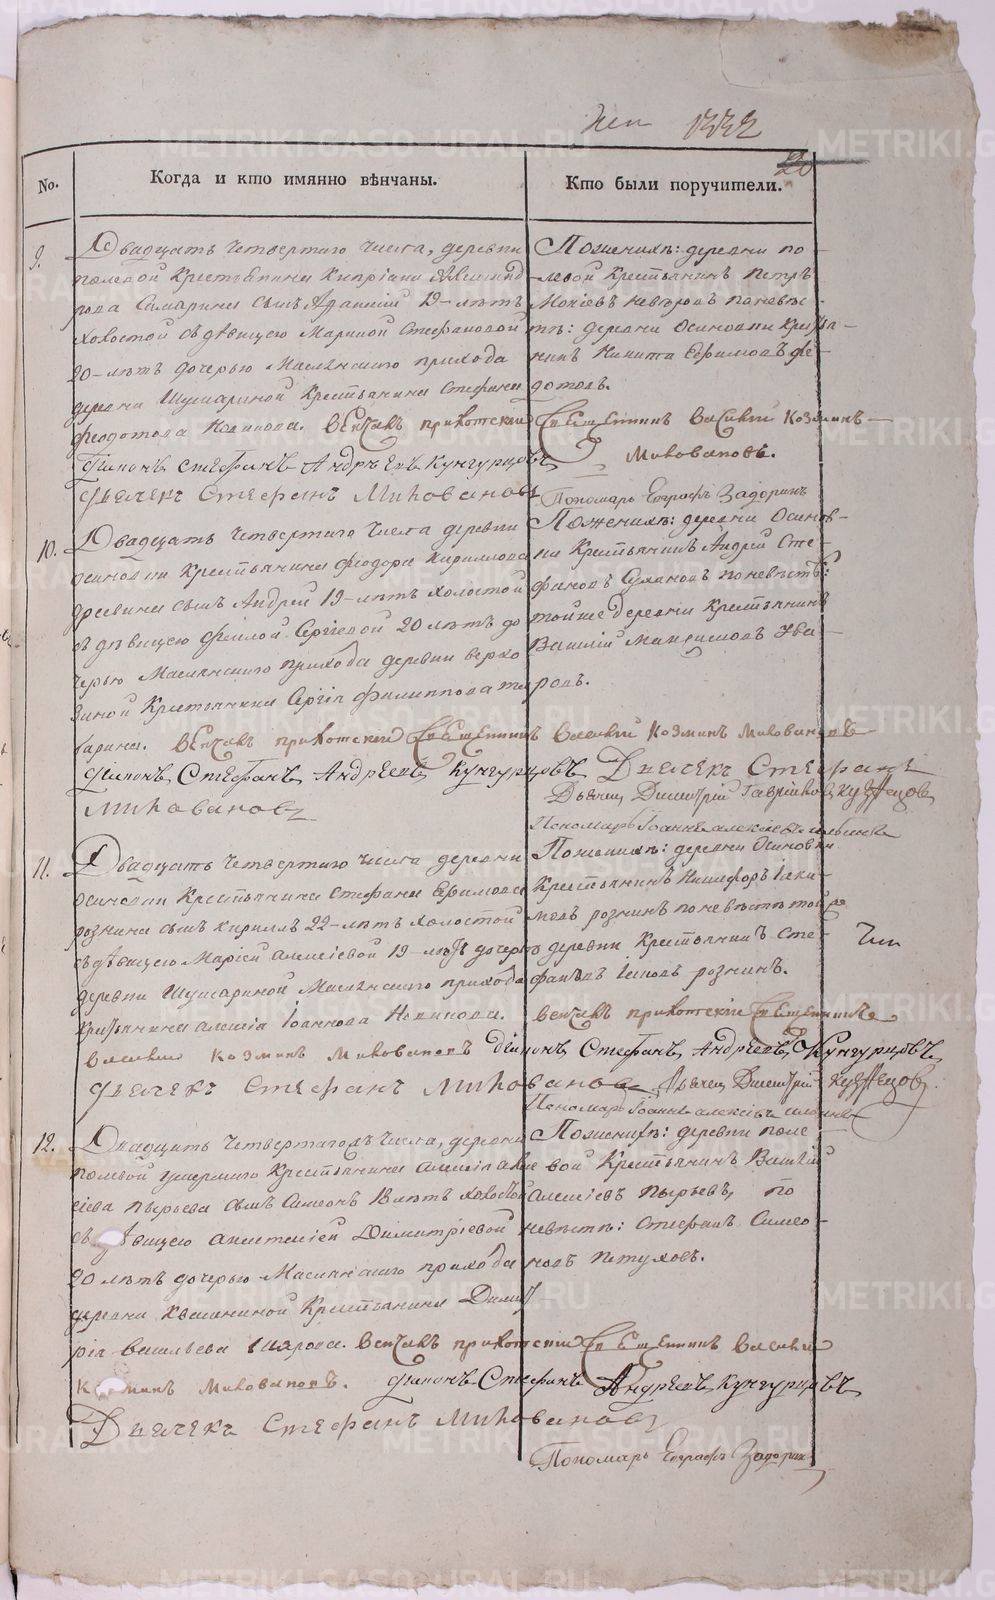 1332
20
No.
Когда и кто имянно вѣнчаны.
Кто были поручители.
9.
Двадцать четвертаго числа, деревни
полевой крестьянина Кипріана
сынъ 19-лѣтъ
холостой съ дѣвицею Мариной Стефановой
20-лѣтъ дочерью Маслянскаго прихода
деревни Шушариной крестьянина Стефана
Феодотова Новикова. Венчавъ прихотскии
Дїаконъ Стефанъ Андрѣевъ Кунгурцовъ
Дьячекъ Стефанъ Миловановъ
По женихѣ: деревни по-
левой крестьянинъ Петръ
по невѣс-
тѣ: деревни Осиновки кресть-
нинъ Никита Ефимовъ Фе-
дотовъ.
Священникъ Василий Козминъ
Миловановъ.
Пономарь Евграфъ Задоринъ
10.
Двадцать четвертаго числа деревни
осиновки крестьянина Феодора Кириллова
сынъ Андрей 19-лѣтъ холостой
съ дѣвицею Сергіевой 20 лѣтъ до
черью Маслянскаго прихода деревни верхо
зиной крестьянина Сергія Филиппова та
тарина. Венчавъ прихотскии Священникъ Василий Козминъ Миловановъ
Дїаконъ, Стефанъ, Андреевъ, Кунгурцовъ Дьячекъ Стефанъ
Миловановъ
По женихѣ: деревни Осинов-
ки крестьянинъ Андрей Сте-
фановъ Сухановъ по невѣстѣ:
тойже деревни крестьянинъ
Василій Максимовъ Ува-
ровъ.
Дьячец Димитрій Гавриловъ Кузнецов
Пономарь Іоаннъ Алексіевъ
11.
Двадцать четвертаго числа деревни
осиновки крестьянина Стефана Ефимова
рознина сынъ Кириллъ 22-лѣтъ холостой
съ дѣвицею Марїей Алексіевой 19-лѣтъ дочерью
деревни Шушариной Маслянскаго прихода
крестьянина Алексіа Іоаннова Новикова.
По женихѣ: деревни Осиновки
крестьянинъ Никифоръ Іаки-
мовъ рознинъ по невѣстѣ тойже
деревни крестьянинъ Сте-
фанъ рознинъ.
Венчавъ прихотскїи Священникъ
Василии Козминъ Миловановъ Дїаконъ, Стефанъ, Андреевъ, Кунгурцовъ
Дьячекъ Стефанъ Миловановъ Дьячец Димитрїй Кузнецов.
Пономарь Іоаннъ Алексіевъ
12.
Двадцать четвертаго числа, деревни
полевой умершаго крестьянина Алексіа Алек
сіева Пырьева сынъ Симеонъ 18 лѣтъ холостой
съ дѣвицею Анастасіей Димитріевой
20 лѣтъ дочерью Маслянскаго прихода
деревни Квашниной крестьянина Димит
рія Васильева Венчавъ прихотскїи Священникъ Василии
Козминъ Миловановъ. Дїаконъ Стефанъ Андреевъ, Кунгурцовъ
Дьячекъ Стефанъ Миловановъ
По женихѣ: деревни поле
вой крестьянинъ Василій
Алексіевъ Пырьевъ, по
невѣстѣ: Стефанъ Симео-
новъ Пѣтуховъ.
Пономарь Евграфъ Задорин
METRIKI.GASO-URAL.RU